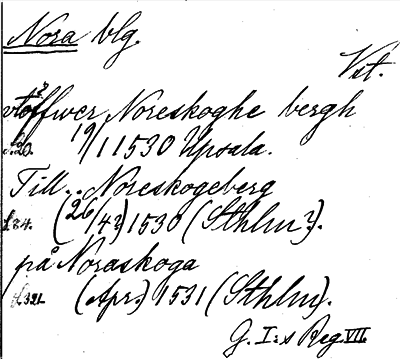 Nora blg.
Vst.
vtöffwer Noreskoghe bergh
s. 20. 19/1 1530 Upsala.
Till.. Noreskogeberg
s. 84. (26/4?) 1530 (Sthlm?).
på Noraskoga
s. 321. (Apr.) 1531 (Sthlm).
G. I:s Reg. VII.